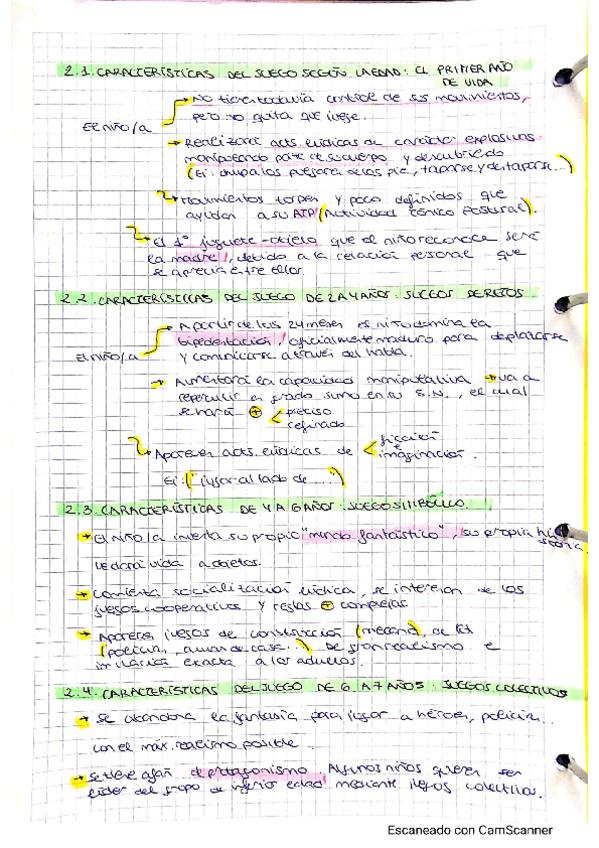 2.1. CARACTERÍSTICAS DEL JUEGO SEGÚN LA EDAD: EL PRIMER AÑO
DE VIDA
No tiene todavía control de sus movimientos,
pero no quita que juegue.
El niño/a
Realizará acts. lúdicas de carácter explosivas
manipulando parte de su cuerpo y descubriendo
(Ej: chupa los de los pie, taparse y destaparse...)
Movimientos torpes y poco definidos que
ayudan a su ATP (Actividad tónico postural).
El 1º juguete-objeto que el niño reconoce será
la madre, debido a la relación personal que
se aprecia entre ellos.
2.2. CARACTERÍSTICAS DEL JUEGO DE 2 A 4 AÑOS: JUEGOS DE RETOS.
A partir de los 24 meses es niño domina la
bipedestación, oficialmente maduro para desplazarse
El niño/a
y comunicarse a través del habla.
Aumentará la capacidad manipulativa → va a
repercutir en grado sumo en su S.N., el cual
se hará + preciso
refinado
Aparecen acts. lúdicas de ficción
e
imaginación.
Ej: ("jugar al lado de ...")
2.3. CARACTERÍSTICAS DE 4 A 6 AÑOS: JUEGO SIMBÓLICO.
El niño/a inventa su propio "mundo fantástico", su propia
le dará vida a objetos.
Comienza socialización lúdica, se interesan de los
juegos cooperativos y reglas + complejas.
Aparecen juegos de construcción (mecano), de rol
(policía, amas de casa...) De gran realismo e
imitación exacta a los adultos.
2.4. CARACTERÍSTICAS DEL JUEGO DE 6 A 7 AÑOS: JUEGOS COLECTIVOS
Se abandona la fantasía para jugar a héroes, policía...
con el máx. realismo posible.
Se tiene afán de protagonismo. Algunos niños quieren ser
líder del grupo de inferior edad mediante juegos colectivos.
Escaneado con CamScanner